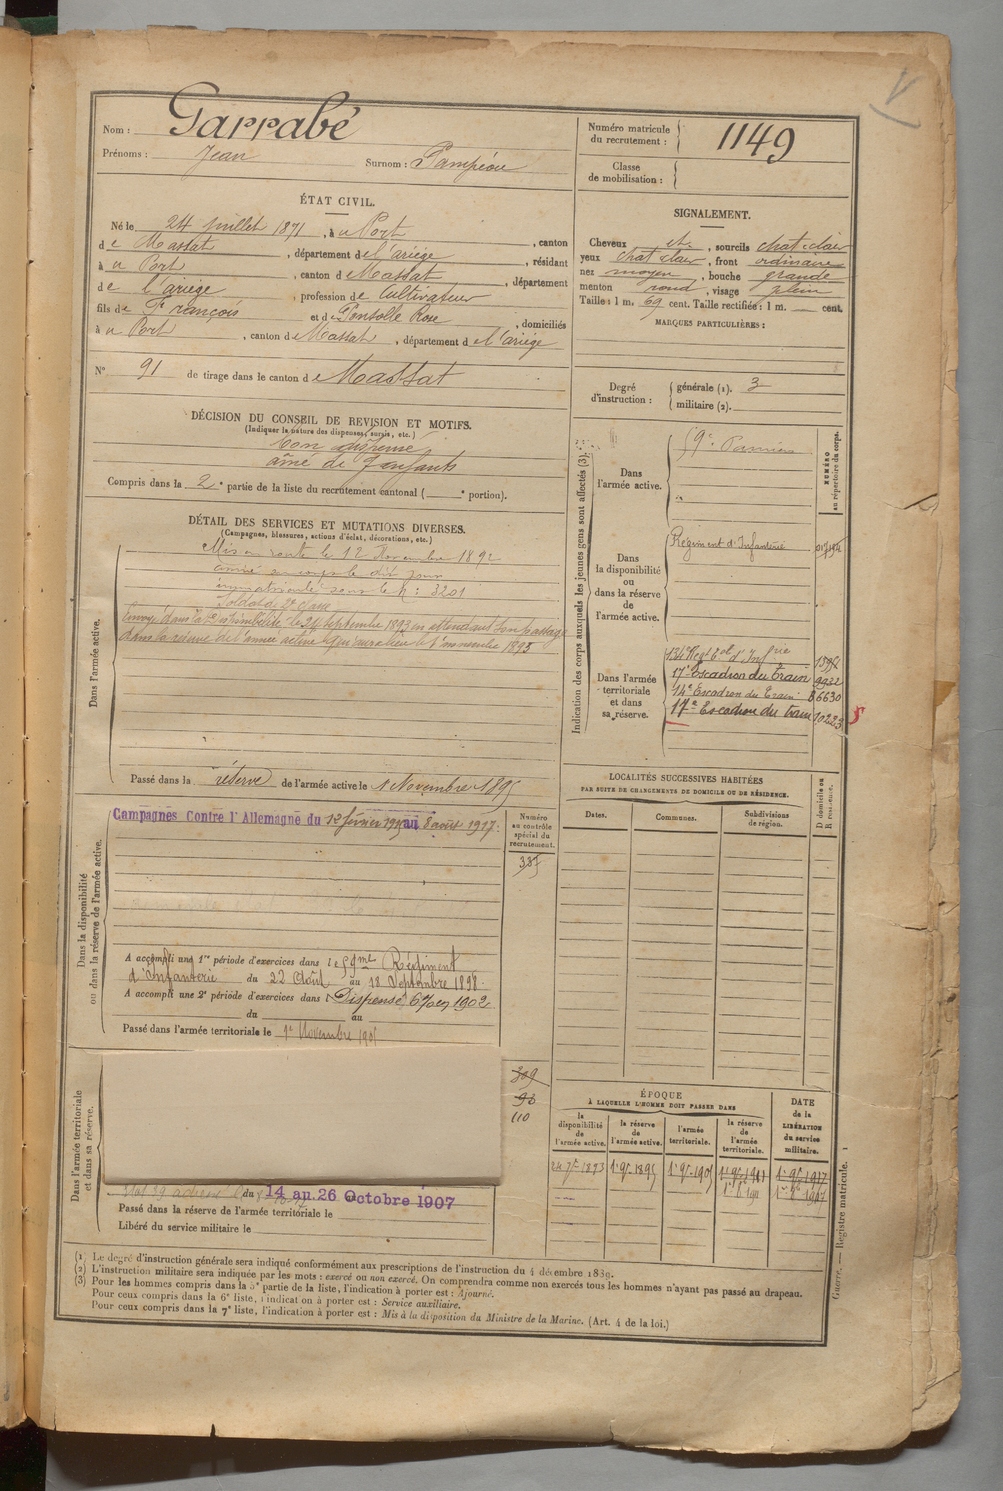 Nom : Garrabé
Prénoms : Jean Surnom : Pampéou
ÉTAT CIVIL.
Né le 24 juillet 1871, à u Port, canton
de Massat, département de l'ariège, résidant
à u Port, canton de Massat, département
de l'ariège, profession de Cultivateur
fils de François et de Rose, domiciliés
à u Port, canton de Massat, département de l'ariége
N° 91 de tirage dans le canton de Massat
DÉCISION DU CONSEIL DE REVISION ET MOTIFS.
(Indiquer la nature des dispenses, sursis, etc.)
bon dispensé
aîné de 7 enfants
Compris dans la 2e partie de la liste du recrutement cantonal ( e portion).
DÉTAIL DES SERVICES ET MUTATIONS DIVERSES.
(Campagnes, blessures, actions d'éclat, décorations, etc.)
Dans l'armée active.
Mis en route le 12 Novembre 1892
arrivé au corps le dit jour
immatriculé sous le n° : 3201
Soldat de 2e classe
Envoyé dans la disponibilité le 24 septembre 1893 en attendant son passage
dans la réserve de l'armée active qui aura lieu le 1er novembre 1895
Passé dans la réserve de l'armée active le 1 Novembre 1895
Dans la disponibilité
ou dans la réserve de l'armée active.
Campagnes Contre l'Allemagne du 12 février au 8 août 1917.
A accompli une 1re période d'exercices dans le 59me Régiment
d'Infanterie du 22 Août au 18 Septembre 1898.
A accompli une 2e période d'exercices dans l Dispensé en 1902
du au
Passé dans l'armée territoriale le 1er Novembre 1905
Dans l'armée territoriale
et dans sa réserve.
du 14 au 26 Octobre 1907
Passé dans la réserve de l'armée territoriale le
Libéré du service militaire le
Numéro
au contrôle
spécial du
recrutement.
387
309
93
110
Numéro matricule
du recrutement : 1149
Classe
de mobilisation :
SIGNALEMENT.
Cheveux et, sourcils chat clair
yeux chat clair, front ordinaire
nez moyen, bouche grande
menton rond, visage plein
Taille : 1 m, 69 cent. Taille rectifiée : 1 m. — cent.
MARQUES PARTICULIÈRES :
Degré
d'instruction :
générale (1). 3
militaire (2).
Indication des corps auxquels les jeunes gens sont affectés (3).
NUMÉRO
au répertoire du corps.
Dans
l'armée active.
59e Pamiers
Dans
la disponibilité
ou
dans la réserve
de
l'armée active.
Régiment d'Infanterie
Dans l'armée
territoriale
et dans
sa réserve.
134e Regt Tal d'Infrie
17e Escadron du Train 9932
14e Escadron du Train 86630
17e Escadron du train 10223
LOCALITÉS SUCCESSIVES HABITÉES
PAR SUITE DE CHANGEMENTS DE DOMICILE OU DE RÉSIDENCE.
Dates. Communes. Subdivisions
de région.
D domicile ou
R résidence.
ÉPOQUE
À LAQUELLE L'HOMME DOIT PASSER DANS
la
disponibilité
de
l'armée active.
la réserve
de
l'armée active.
l'armée
territoriale.
la réserve
de
l'armée
territoriale.
DATE
de la
LIBÉRATION
du service
militaire.
24 7bre 1893 1er 9bre 1895 1er 9bre 1905 1er 9bre 1911 1er 9bre 1917
1er 8bre 1911 1er 8bre 1917
(1) Le degré d'instruction générale sera indiqué conformément aux prescriptions de l'instruction du 4 décembre 1889.
(2) L'instruction militaire sera indiquée par les mots : exercé ou non exercé. On comprendra comme non exercés tous les hommes n'ayant pas passé au drapeau.
(3) Pour les hommes compris dans la 5e partie de la liste, l'indication à porter est : Ajourné.
Pour ceux compris dans la 6e liste, l'indication à porter est : Service auxiliaire.
Pour ceux compris dans la 7e liste, l'indication à porter est : Mis à la disposition du Ministre de la Marine. (Art. 4 de la loi.)
Guerre. — Registre matricule. 1